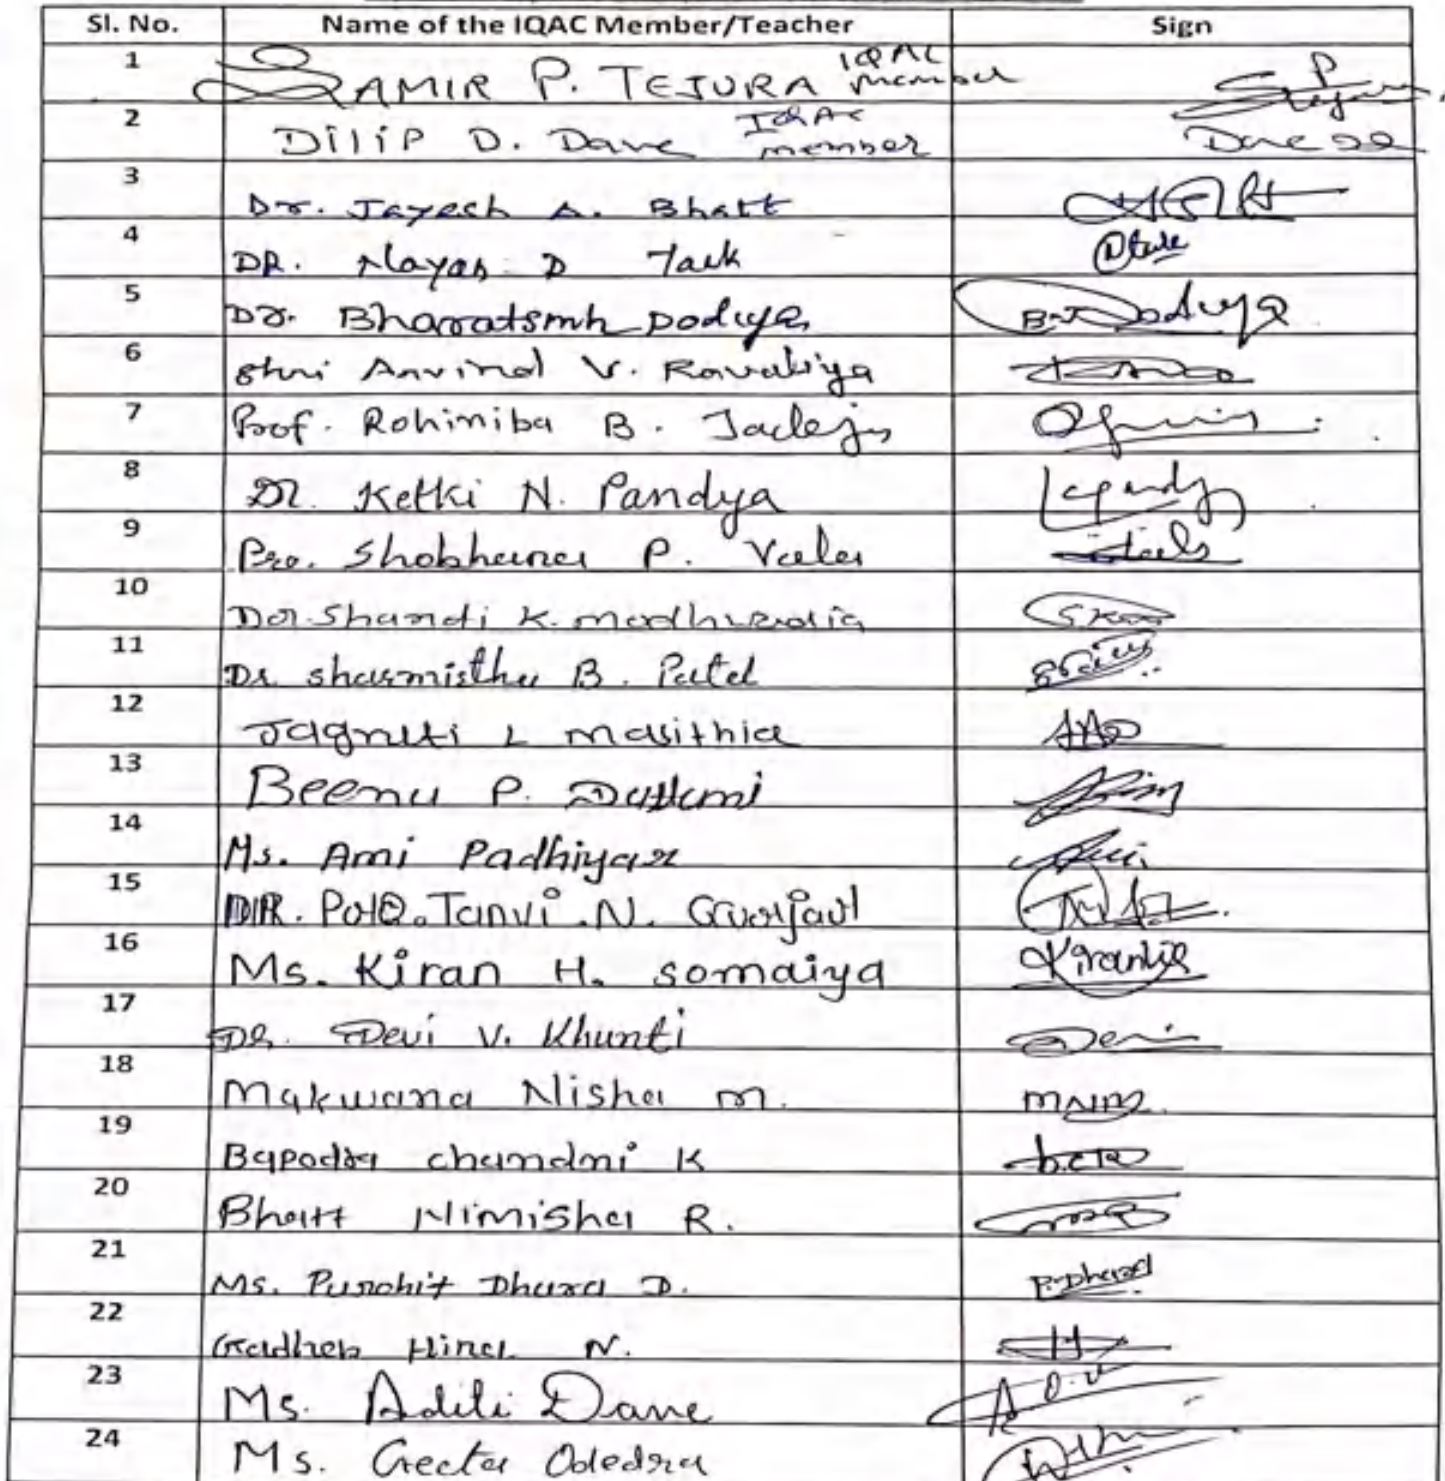 Sl. No. Name of the IQAC Member/Teacher Sign
1 SAMIR P. TEJURA IQAC member
2 Dilip D. Dave IQAC member Dave
3 Dr. Jayesh A. Bhatt
4 DR. Nayan D Tank
5 Dr. Bharatsinh Dodiya B. Dodiya
6 Shri Arvind V. Ravaliya
7 Prof. Rohiniba B. Jadeja
8 Dr. Ketki N. Pandya
9 Pro. Shobhana P. Vala
10 Dr. Shanti K. modhvadia
11 Dr sharmistha B. Patel
12 Jagruti L masithia
13 Beena P. Dattani
14 Ms. Ami Padhiyar
15 Tanvi .N. Gurjar
16 Ms. Kiran H. somaiya
17 Dr. Devi V. Khunti Devi
18 Makwana Nisha m.
19 Bapodra chandni K
20 Bhatt Nimisha R.
21 Ms. Purohit Dhara D. P. Dhara
22 Gadher Hina N. H
23 Ms. Aditi Dave
24 Ms. Geeta Odedra